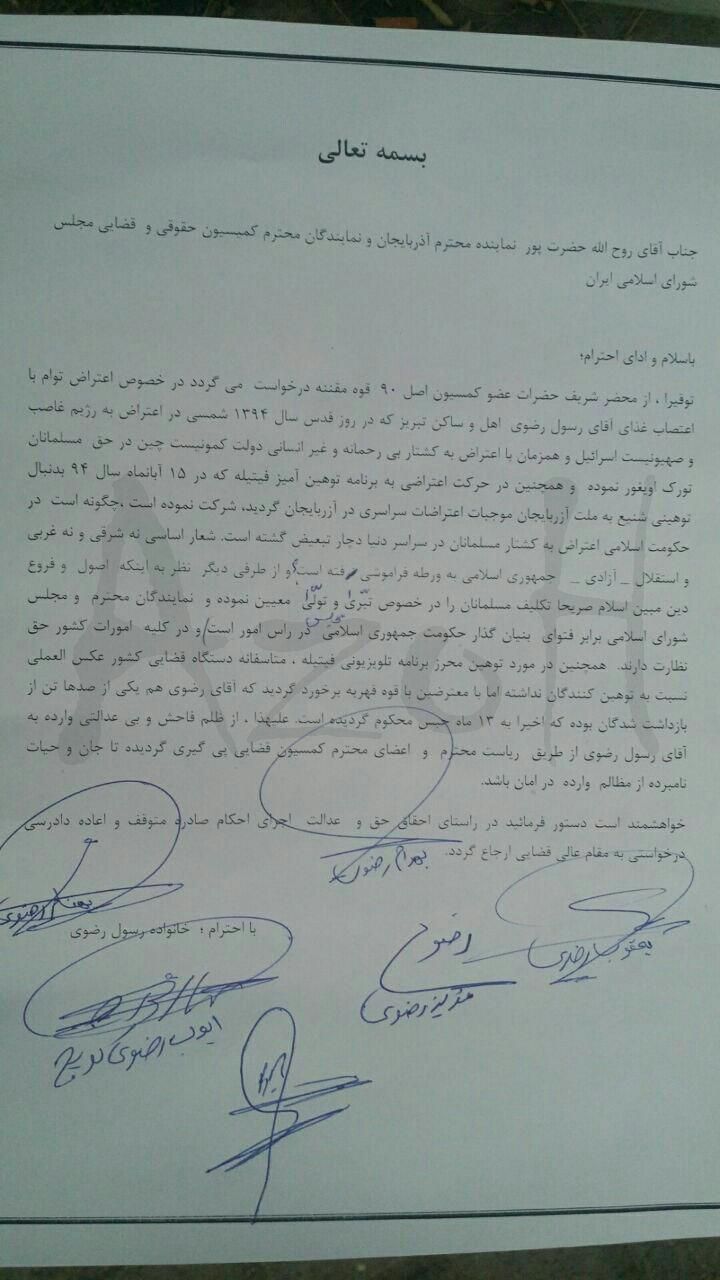 بسمه تعالی
جناب آقای روح الله حضرت پور نماینده محترم آذربایجان و نمایندگان محترم کمیسیون حقوقی و قضایی مجلس
شورای اسلامی ایران
باسلام و ادای احترام؛
توقیرا ، از محضر شریف حضرات عضو کمسیون اصل ۹۰ قوه مقننه درخواست می گردد در خصوص اعتراض توام با
اعتصاب غذای آقای رسول رضوی اهل و ساکن تبریز که در روز قدس سال ۱۳۹۴ شمسی در اعتراض به رژیم غاصب
و صهیونیست اسرائیل و همزمان با اعتراض به کشتار بی رحمانه و غیر انسانی دولت کمونیست چین در حق مسلمانان
تورک اویغور نموده و همچنین در حرکت اعتراضی به برنامه توهین آمیز فیتیله که در ۱۵ آبانماه سال ۹۴ بدنبال
توهینی شنیع به ملت آزربایجان موجبات اعتراضات سراسری در آزربایجان گردید، شرکت نموده است ،چگونه است در
حکومت اسلامی اعتراض به کشتار مسلمانان در سراسر دنیا دچار تبعیض گشته است. شعار اساسی نه شرقی و نه غربی
و استقلال _ آزادی _ جمهوری اسلامی به ورطه فراموشی رفته است؟و از طرفی دیگر نظر به اینکه اصول و فروع
دین مبین اسلام صریحا تکلیف مسلمانان را در خصوص تبرّیٰ و تولّیٰ معیین نموده و نمایندگان محترم و مجلس
شورای اسلامی برابر فتوای بنیان گذار حکومت جمهوری اسلامی مجلس در راس امور است) و در کلیه امورات کشور حق
نظارت دارند. همچنین در مورد توهین محرز برنامه تلویزیونی فیتیله ، متاسفانه دستگاه قضایی کشور عکس العملی
نسبت به توهین کنندگان نداشته اما با معترضین با قوه قهریه برخورد گردید که آقای رضوی هم یکی از صدها تن از
بازداشت شدگان بوده که اخیرا به ۱۳ ماه حبس محکوم گردیده است. علیهذا ، از ظلم فاحش و بی عدالتی وارده به
آقای رسول رضوی از طریق ریاست محترم و اعضای محترم کمسیون قضایی پی گیری گردیده تا جان و حیات
نامبرده از مظالم وارده در امان باشد.
خواهشمند است دستور فرمائید در راستای احقاق حق و عدالت اجرای احکام صادره متوقف و اعاده دادرسی
درخواستی به مقام عالی قضایی ارجاع گردد.
بهرام رضوی
با احترام ؛ خانواده رسول رضوی
رضوی
AZOH